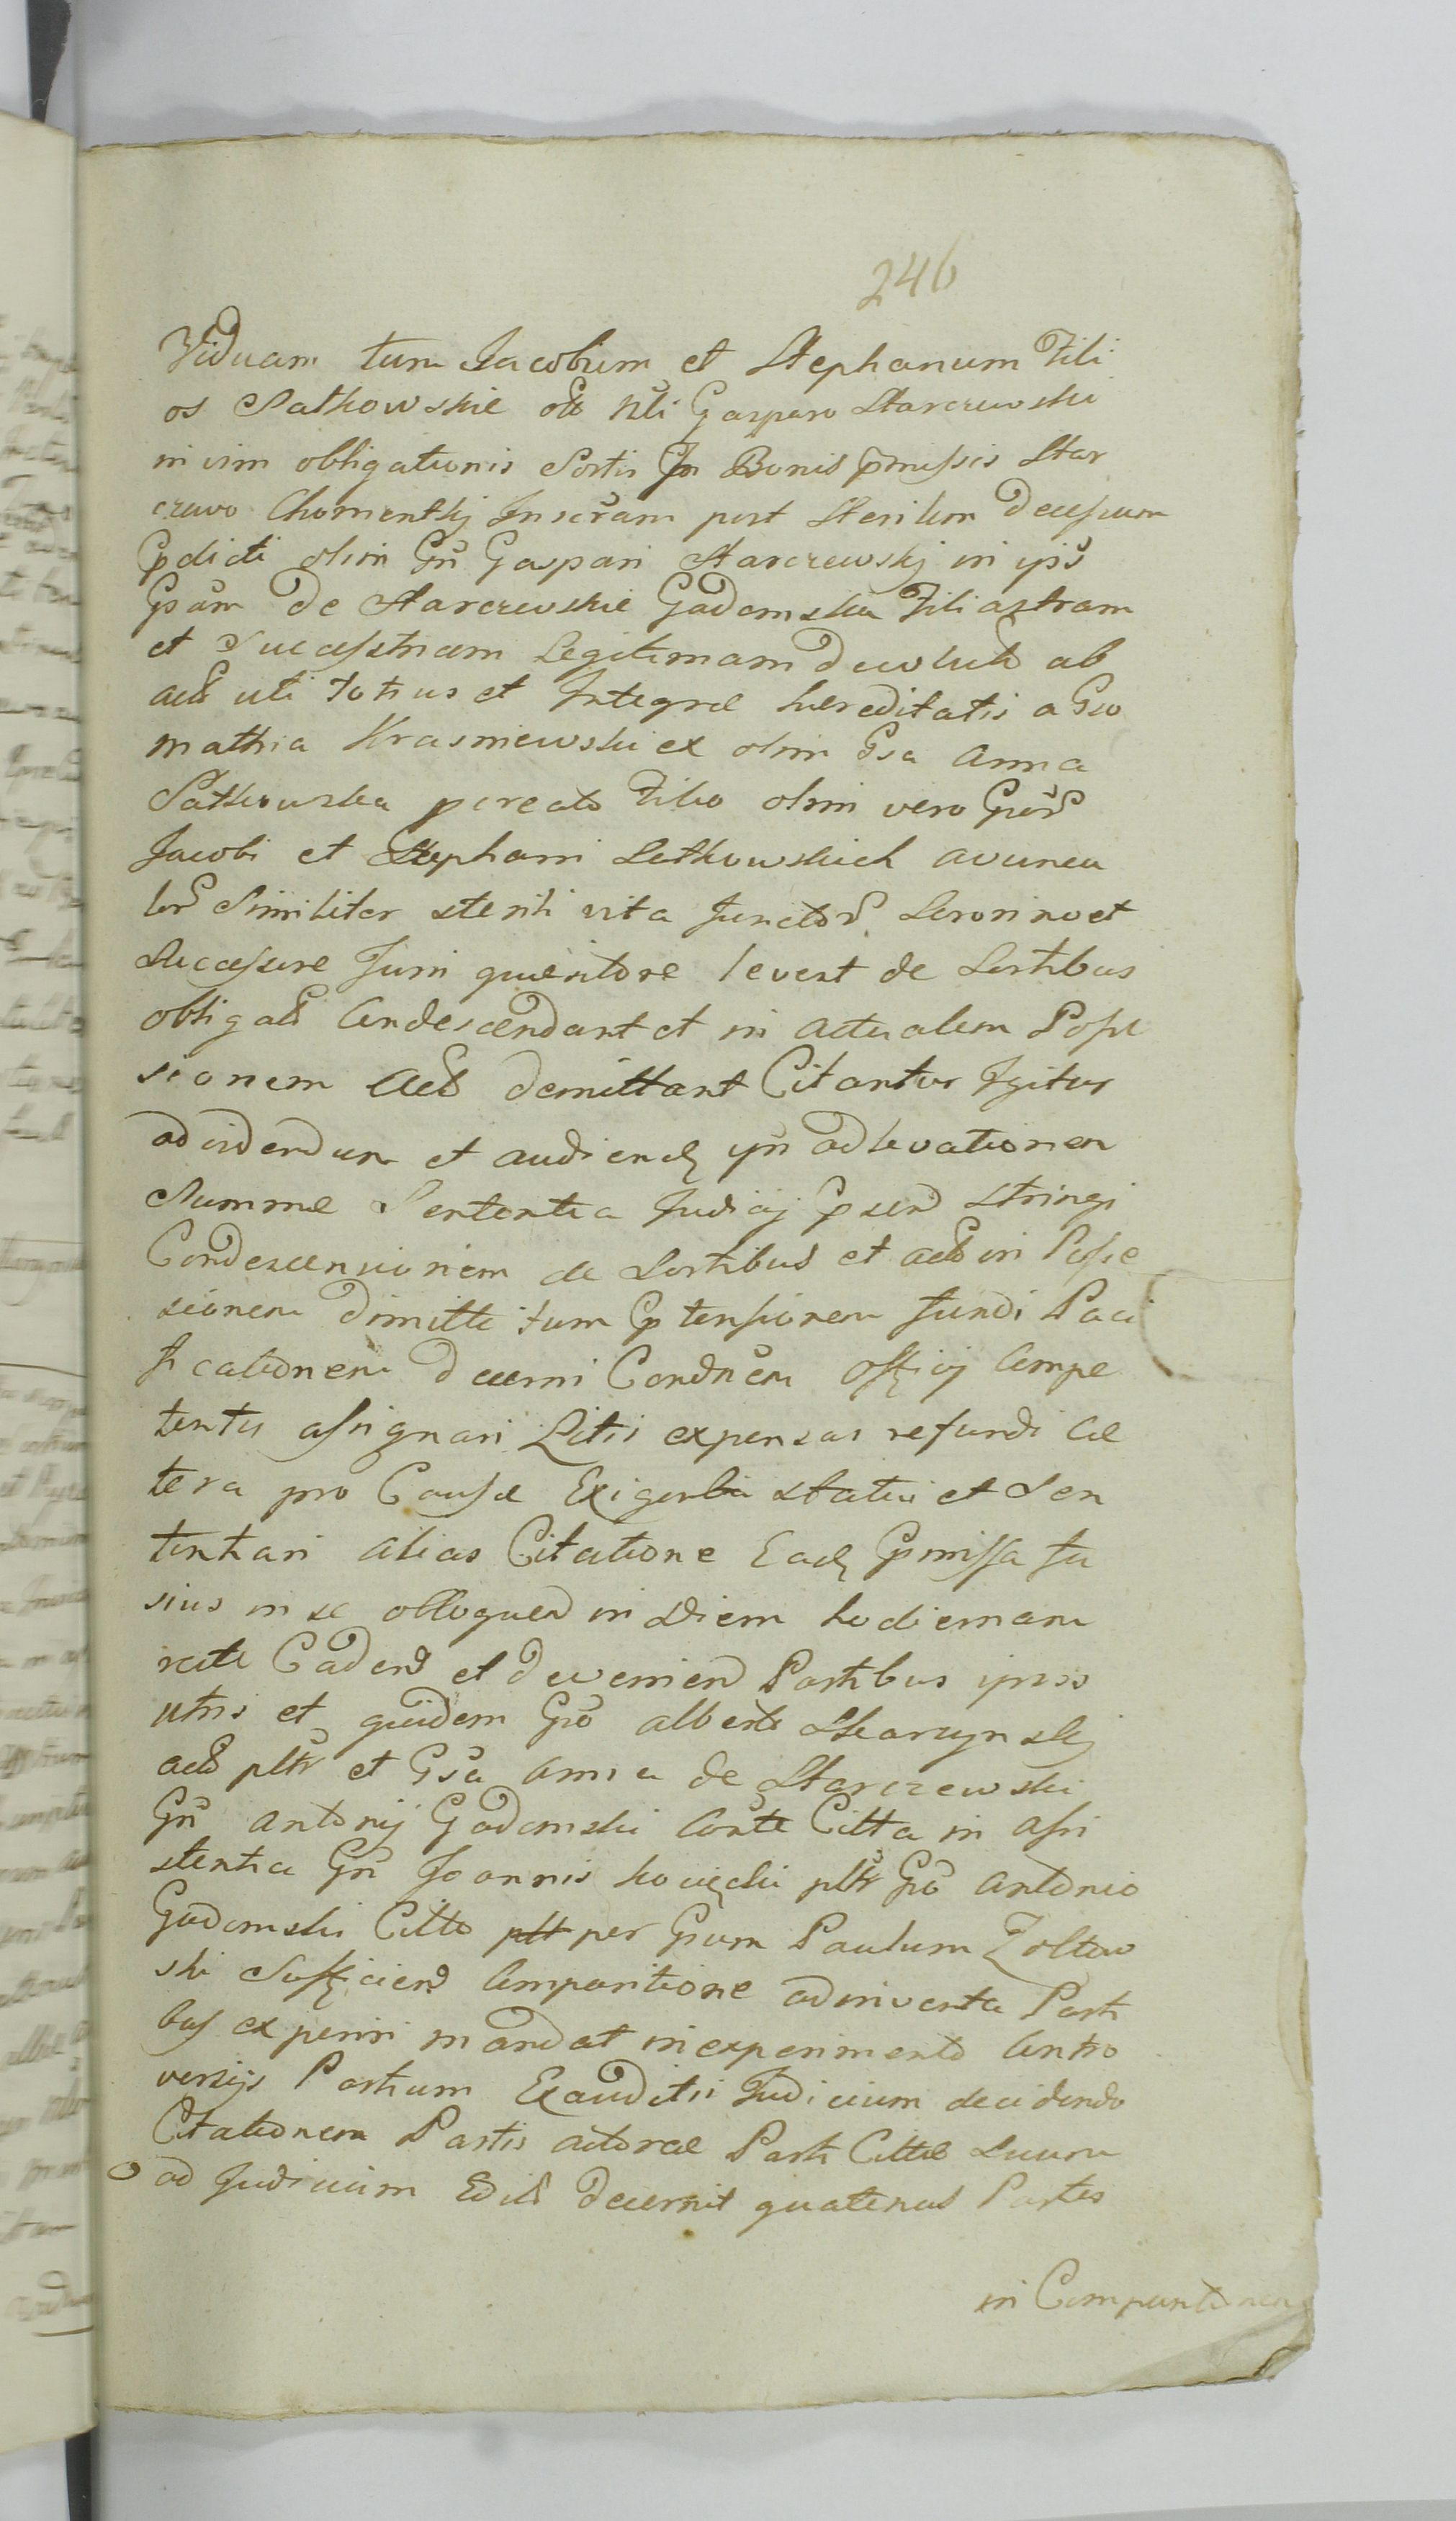 246
Viduam tum Jacobum et Stephanum Fili
os Satkowskie olt Nli Gasparo Starczewski
in vim obligationis Sortis In Bonis pmissis Star
czewo Chomentky Inscram post sterilem Decessum
pdicti olim Gn Gaspari Starczewskj in ips
Gsam de Starczewskie Gadomska Filiastram
et Sucesstricem Legitimam devolut ab
act uti Totius et Integræ hæreditatis a Gso
Mathia Krasniewski ex olim Gsa Anna
Satkowska pcreato Filio olim vero Gsor
Jacobi et Stephani Satkowskich avuncu
lor Similiter sterili vita functor Seronino et
Succesore Juri quæsitore levent de Sortibus
obligat Condescendant et in actualem Posse
sionem Act demittant Citantur Igitur
ad videndum et audiend ipn ad levationem
Summæ Sententia Judicij psen stringi
Condescensionem de Sortibus et act in Posse
sionem dimitti tum ptensionem fundi Paci
ficationem decerni Condnem Officij Compe
tentis assignari Litis expensas refundi Cæ
tera pro Causæ Exigentia statui et Sen
tentiari alias Citatione Ead pmissa fu
sius in se obloquen in Diem hodiernam
recte Caden et devenien Partibus ipsis
utris et quidem Gso alberto Skarzynskj
act pltr et Gsa Anna de Starczewski
Gn Antonij Gadomski Conte Citta in assi
stentia Gn Joannis howiecki pltr Gso Antonio
Gadomski Citto per Gsum Paulum Zoltow
ski Sufficien Comparitione adinventa Parti
bus experiri mandat in experimento Contro
versijs Partium Exauditis Judicium decidendo
Citationem Partis actoræ Parti Cittæ Suum
ad Judicium Edit decernit quatenus Partes
in Compuntionem